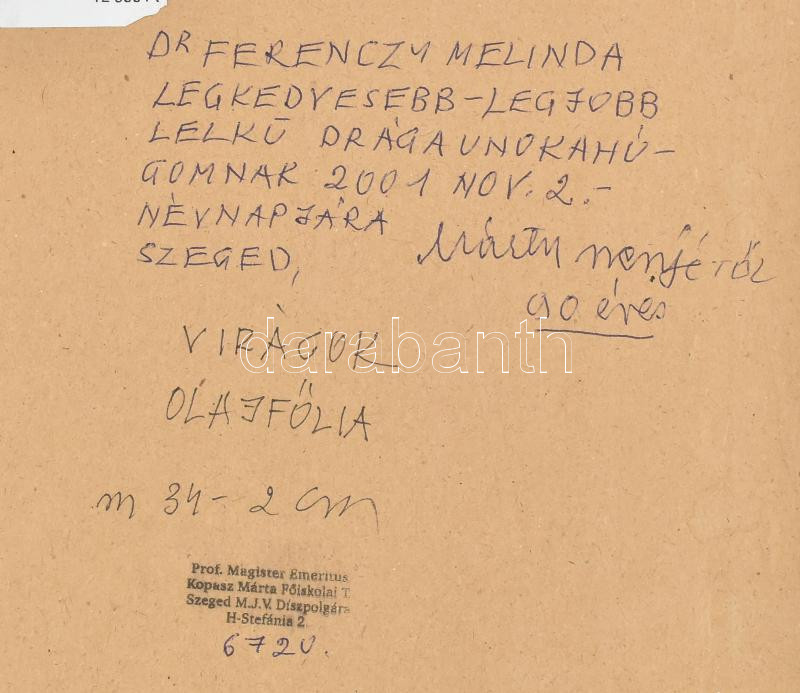 DR FERENCZY MELINDA
LEGKEDVESEBB-LEGJOBB
LELKŰ DRÁGA UNOKAHÚ-
GOMNAK 2001 NOV. 2.-
NÉVNAPJÁRA
SZEGED,
Márta nénjéről
90 éves
VIRÁGOK
OLAJFÓLIA
m 34 - 2 cm
Prof. Magister Emeritus
Kopasz Márta Főiskolai T
Szeged M.J.V. Díszpolgára
H-Stefánia 2
6720.
darabanth